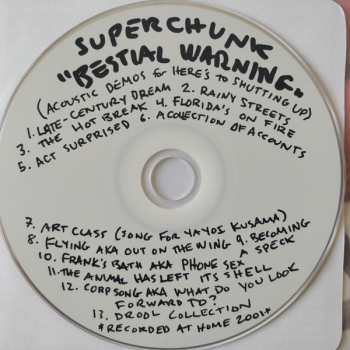 SUPERCHUNK
"BESTIAL WARNING"
(ACOUSTIC DEMOS for HERE'S TO SHUTTING UP)
1. LATE-CENTURY DREAM 2. RAINY STREETS
3. THE HOT BREAK 4. FLORIDA'S ON FIRE
5. ACT SURPRISED 6. A COLLECTION OF ACCOUNTS
7. ART CLASS (SONG FOR YAYOI KUSAMA)
8. FLYING AKA OUT ON THE WING 9. BECOMING
A SPECK
10. FRANK'S BATH AKA PHONE SEX
11. THE ANIMAL HAS LEFT ITS SHELL
12. CORP SONG AKA WHAT DO YOU LOOK
FORWARD TO?
13. DROOL COLLECTION
*RECORDED AT HOME 2001*